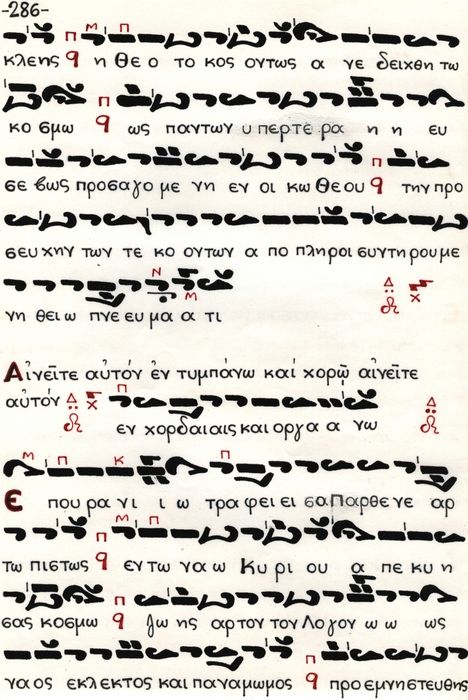 -286-
κλεης η Θε ο το κος ουτως α γε δειχθη τω
κο σμω ως παντων υ περτε ρα η η ευ
σε βως προσαγο με νη εν οι κω Θεου την προ
σευχην των τε κο ουτων α πο πληροι συντηρουμε
νη θειω πνε ευ μα α τι
Αἰνεῖτε αὐτόν ἐν τυμπάνω καί χορῷ αἰνεῖτε
αὐτόν
εν χορδαιαις και οργα α νω
Ε που ρα νι ι ω τρα φει ει σα Παρθενε αρ
τω πιστως εν τω να ω Κυ ρι ου α πε κυ η
σας κοσμω ζω ης αρτον τον Λογον ω ω ως
να ος εκλεκτος και παναμωμος προεμνηστευθης